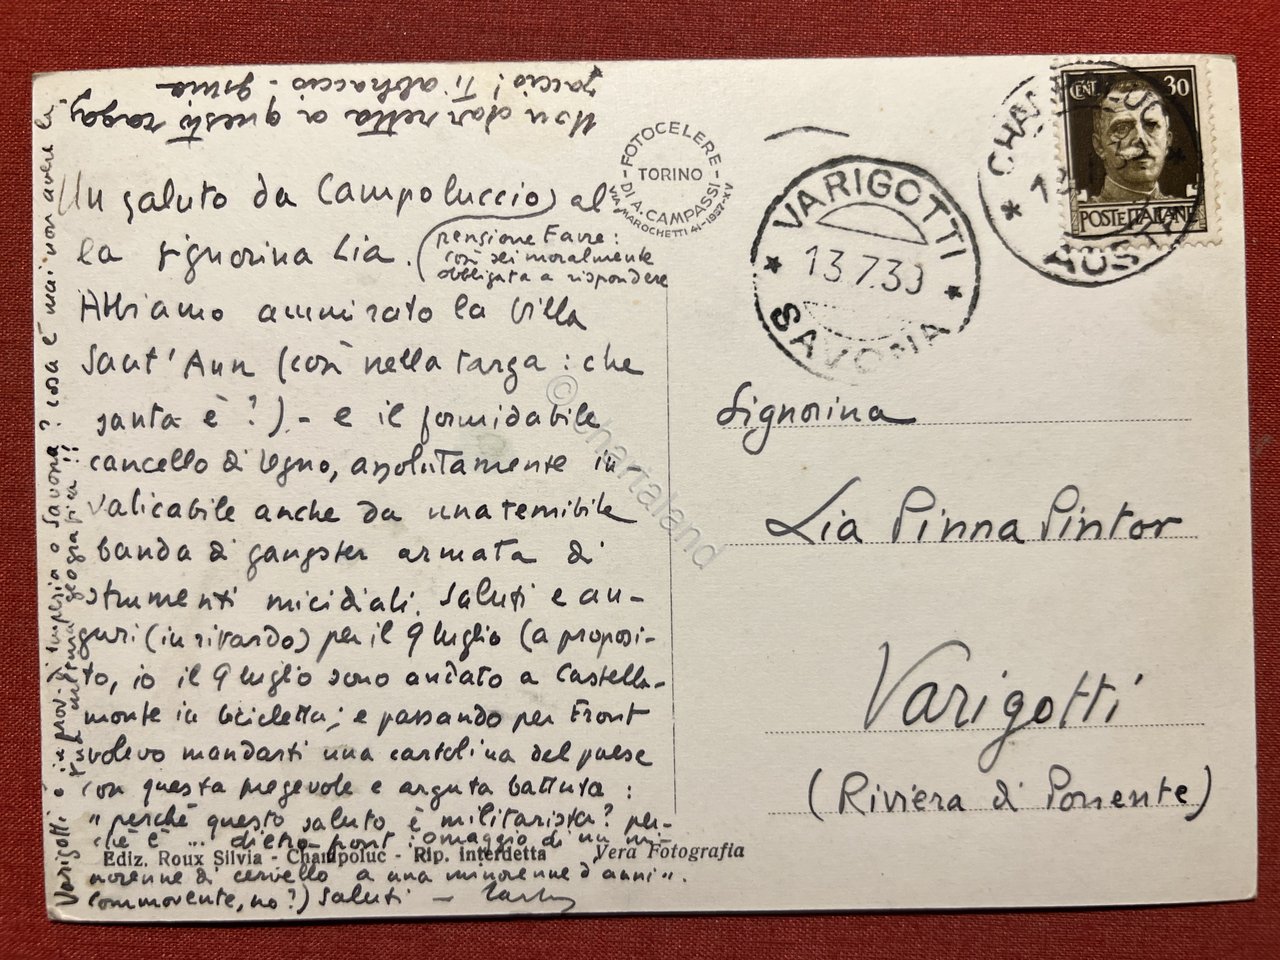 Non dar retta a questi ragaz
zacci! Ti abbraccio -
Un saluto da Campoluccio al
la signorina Lia.
(pensione Favre:
così sei moralmente
obbligata a rispondere
Abbiamo ammirato la Villa
Sant'Ann (così nella targa: che
santa è?) - e il formidabile
cancello di legno, assolutamente in-
valicabile anche da una temibile
banda di gangster armata di
strumenti micidiali. Saluti e au-
guri (in ritardo) per il 9 luglio (a proposi-
to, io il 9 luglio sono andato a Castella-
monte in bicicletta; e passando per Front
volevo mandarti una cartolina del paese
con questa pregevole e arguta battuta:
"perché questo saluto è militarista? per-
ché è ... dietro-front: omaggio di un mi-
norenne di cervello a una minorenne d'anni".
commovente, no?) Saluti -
Varigotti è in prov. di Imperia o Savona? cosa è mai non avere la
tua cultura geografica!!
FOTOCELERE
TORINO
DI A. CAMPASSI
VIA MAROCHETTI 41-1937-XV
VARIGOTTI
13.7.39
SAVONA
CHAMPOLUC
AOSTA
CENT. 30
POSTE ITALIANE
Signorina
Lia Pinna Pintor
Varigotti
(Riviera di Ponente)
Ediz. Roux Silvia - Champoluc - Rip. interdetta
Vera Fotografia
© chartaland